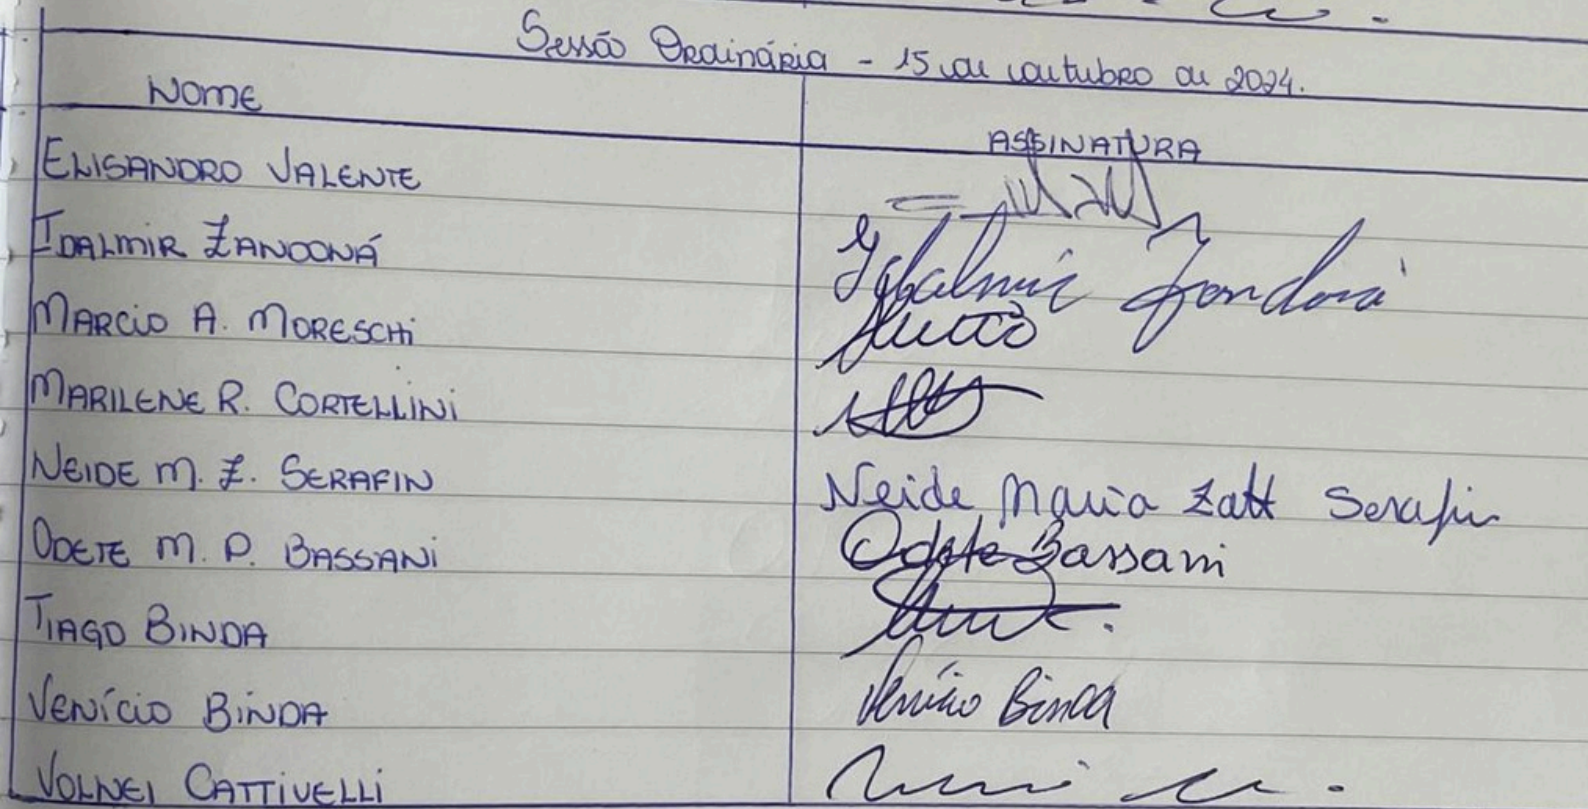 Sessão Ordinária - 15 de outubro de 2024.
NOME ASSINATURA
ELISANDRO VALENTE
IDALMIR ZANDONÁ Idalmir Zandoná
MARCIO A. MORESCHI
MARILENE R. CORTELLINI
NEIDE M. Z. SERAFIN Neide Maria Zatt Serafin
ODETE M. P. BASSANI Odete Bassani
TIAGO BINDA
VENÍCIO BINDA Venício Binda
VOLNEI CATTIVELLI